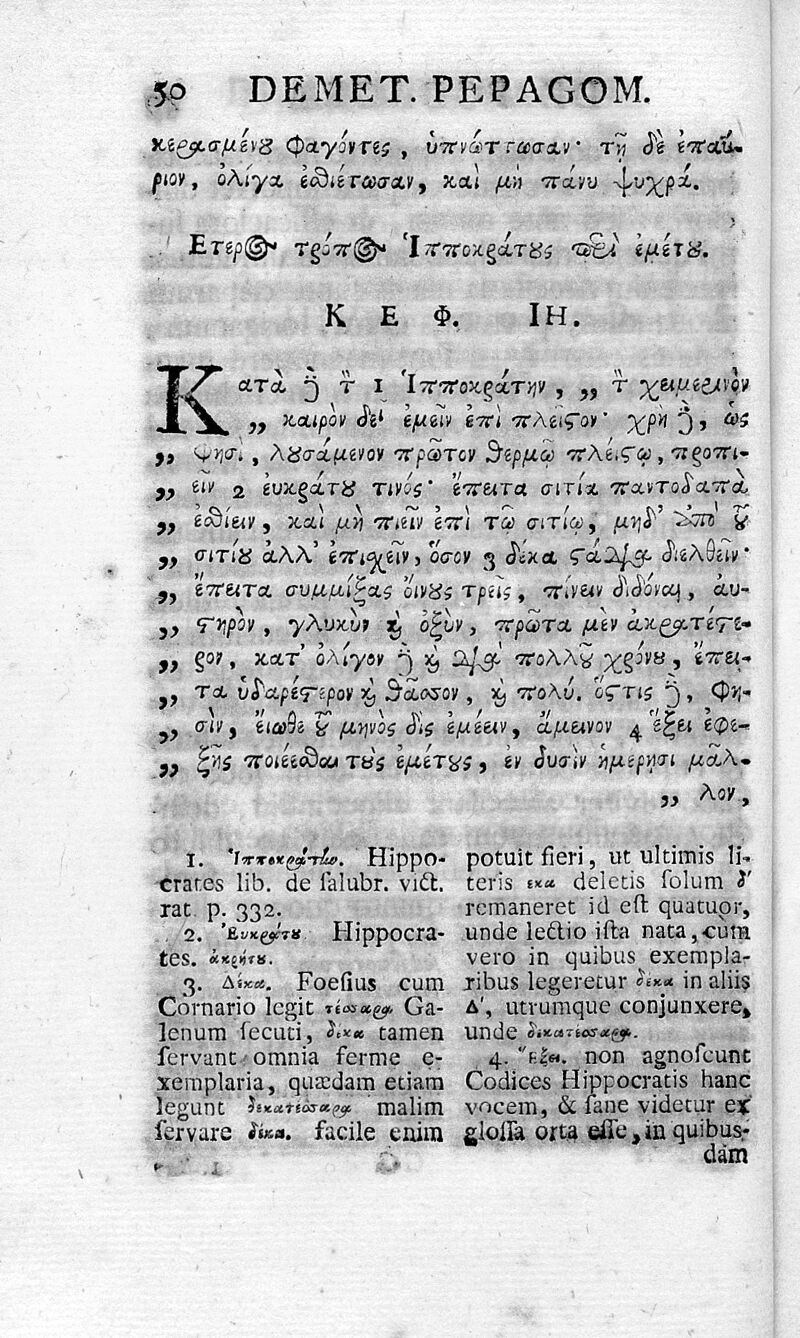 50 DEMET. PEPAGOM.
κερασμένου φαγόντες, ὑπνώττωσαν· τῇ δὲ ἐπαύ-
ριον, ὀλίγα ἐσθιέτωσαν, καὶ μὴ πάνυ ψυχρά.
Ετερος τρόπος Ἱπποκράτους περὶ ἐμέτου.
Κ Ε Φ. ΙΗ.
Κατὰ δὲ τὸν 1 Ἱπποκράτην, „ τὸν χειμερινὸν
„ καιρὸν δεῖ ἐμεῖν ἐπὶ πλεῖστον· χρὴ δὲ, ὡς
„ φησὶ, λουσάμενον πρῶτον θερμῷ πλείστῳ, προπι-
„ εῖν 2 εὐκράτου τινός· ἔπειτα σιτία παντοδαπὰ
„ ἐσθίειν, καὶ μὴ πιεῖν ἐπὶ τῷ σιτίῳ, μηδ' ἀπὸ τοῦ
„ σιτίου ἀλλ' ἐπισχεῖν, ὅσον 3 δέκα στάδια διελθεῖν·
„ ἔπειτα συμμίξας ὄινους τρεῖς, πίνειν διδόναι, αυ-
„ στηρὸν, γλυκὺν καὶ ὀξὺν, πρῶτα μὲν ἀκρατέστε-
„ ρον, κατ' ὀλίγον δὲ καὶ διὰ πολλοῦ χρόνου, ἔπει-
„ τα ὑδαρέστερον καὶ θᾶσσον, καὶ πολύ. ὅστις δὲ, φη-
„ σὶν, ἔιωθε τοῦ μηνὸς δὶς ἐμέειν, ἄμεινον 4 ἕξει ἐφε-
„ ξῆς ποιέεσθαι τοὺς ἐμέτους, ἐν δυσὶν ἡμέρῃσι μᾶλ-
„ λον,
1. Ἱπποκράτην. Hippo-
crates lib. de salubr. vict.
rat. p. 332.
2. Ἐυκράτου Hippocra-
tes. ἀκρήτου.
3. Δέκα. Foesius cum
Cornario legit τέσσαρα Ga-
lenum secuti, δέκα tamen
servant omnia ferme e-
xemplaria, quædam etiam
legunt δεκατέσσαρα malim
servare δέκα. facile enim
potuit fieri, ut ultimis li-
teris εκα deletis solum δ'
remaneret id est quatuor,
unde lectio ista nata, cùm
vero in quibus exempla-
ribus legeretur δέκα in aliis
Δ', utrumque conjunxere,
unde δεκατέσσαρα.
4. Ἕξει. non agnoscunt
Codices Hippocratis hanc
vocem, & sane videtur ex
glossa orta esse, in quibus-
dam